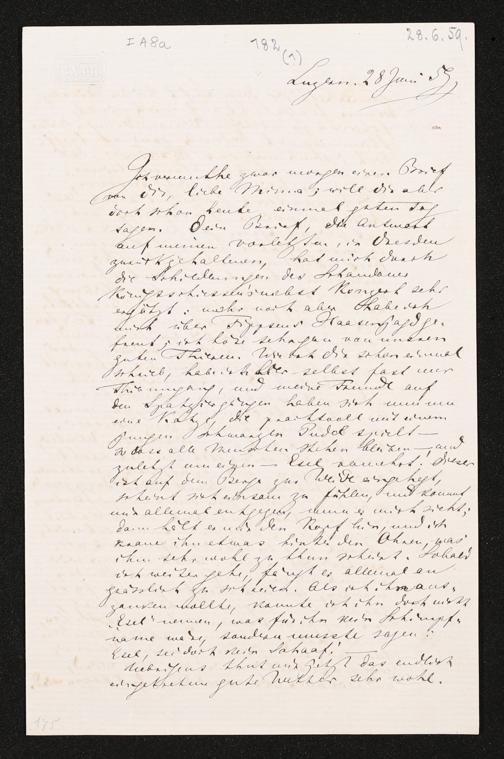 I A8a
182
(1)
28.6.59.
Luzern. 28 Juni 59
Ich vermuthe zwar morgen einen Brief
von dir, liebe Minna; will dir aber
doch schon heute einmal guten Tag
sagen. Dein Brief, die Antwort
auf meinen vorletzten, in Dresden
zurückgehaltenen, hat mich durch
die Schilderungen des Schandauer
Königsschiessens nebst Konzert sehr
ergötzt: mehr noch aber habe ich
mich über Fippsens Haasenjagd ge-
freut; ich höre so gern von unseren
guten Thieren. Wie ich dir schon einmal
schrieb, habe ich hier selbst fast nur
Thierumgang, und meine Freunde auf
den Spatziergängen haben sich nun um
eine Katze, die prachtvoll mit einem
jungen schwarzen Pudel spielt —
so dass alle Menschen stehen bleiben — und
zuletzt um einen — Esel vermehrt. Dieser
ist auf dem Berge zur Weide eingehegt,
scheint sich einsam zu fühlen, und kommt
mir allemal entgegen, wenn er mich sieht;
dann hält er mir den Kopf hin, und ich
kraue ihn etwas hinter den Ohren, was
ihm sehr wohl zu thun scheint. Sobald
ich weiter gehe, fängt er allemal an
grässlich zu schreien. Als ich ihn aus-
zanken wollte, konnte ich ihn doch nicht
"Esel" nennen, was für ihn kein Schimpf-
name wäre, sondern musste sagen:
Esel, sei doch kein Schaaf! —
Uebrigens thut mir jetzt das endlich
eingetretene gute Wetter sehr wohl.
195